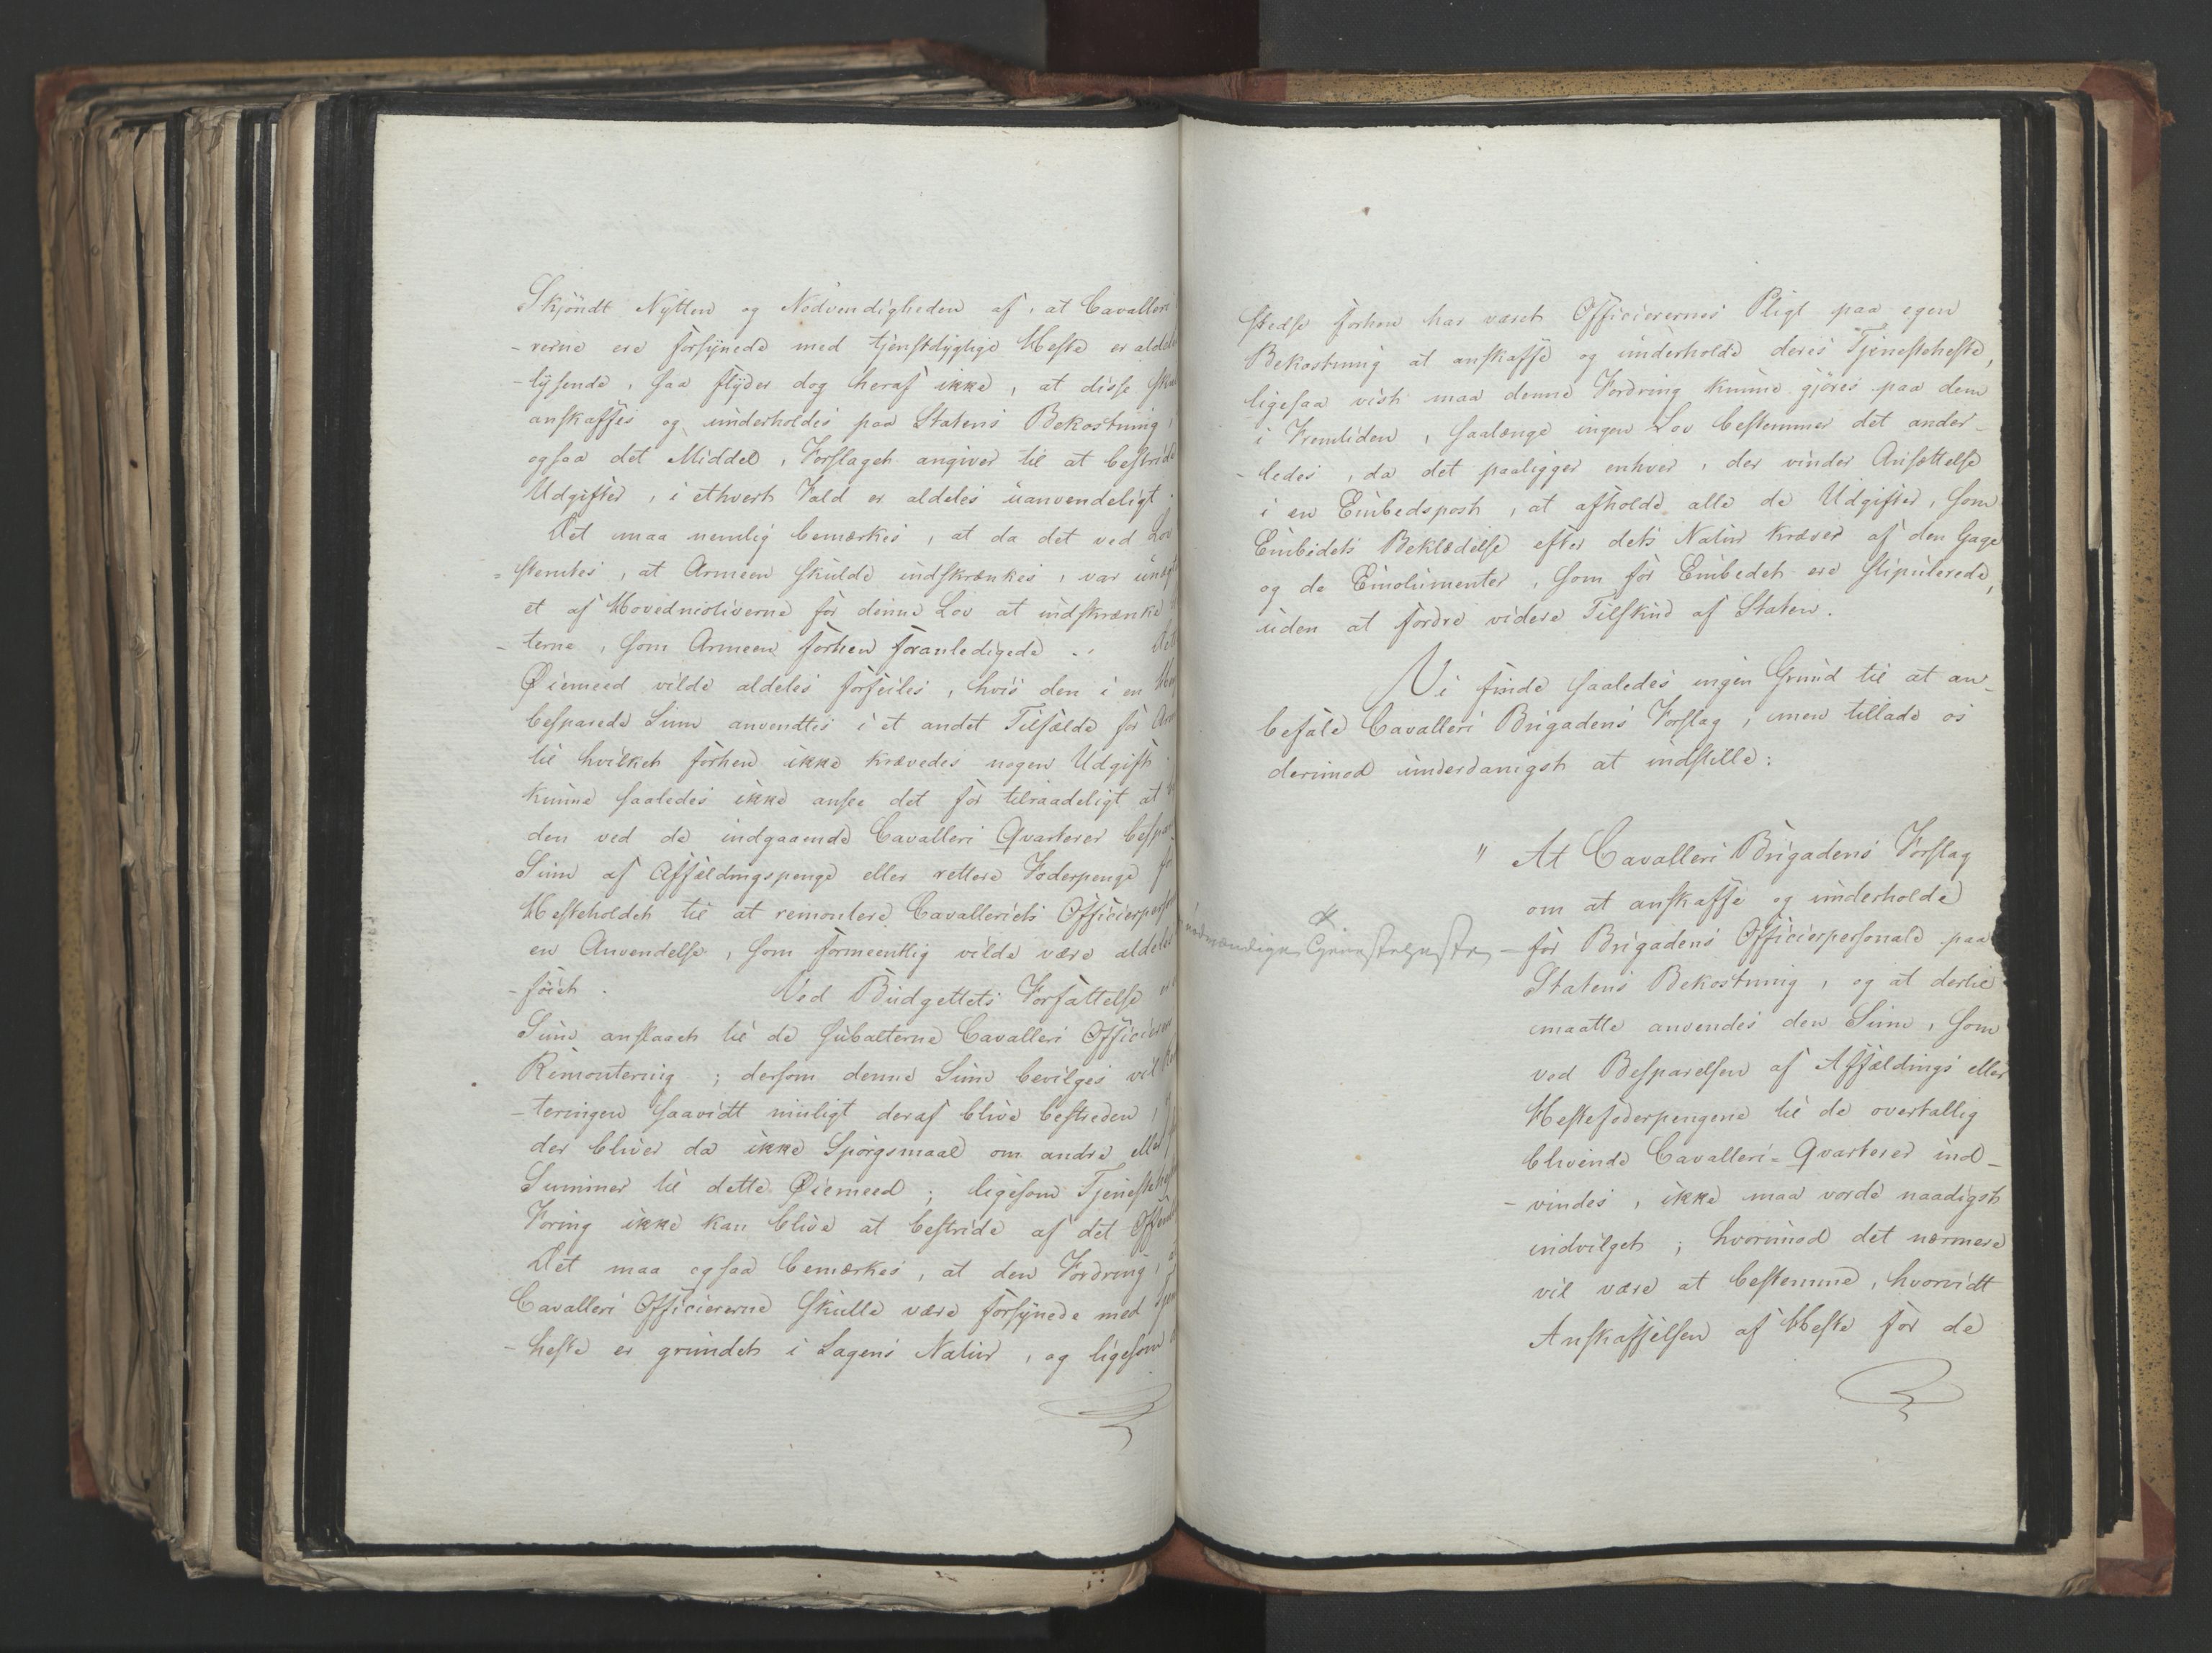 Skjöndt Nytten og Nödvendigheden af, at Cavalleri
-rerne ere forsynede med tjenstdygtige Heste er aldel
-lysende, saa flyder dog heraf ikke, at disse ska
anskaffes og underholdes paa Statens Bekostning,
ogsaa det Middel, Forslaget angiver til at bestride
Udgifter, i ethvert Fald er aldeles uanvendeligt.
Det maa nemlig bemærkes, at da det ved Lov
=stemtes, at Armeen skulde indskrænkes, var unægt
et af Hovedmotiverne for denne Lov at indskrænke
-terne, som Armeen forhen foranledigede.
Øiemeed vilde aldeles forfeiles, hvis den i en
besparede Sum anvendtes i et andet Tilfælde for Ar
til hvilket forhen ikke krævedes nogen Udgift.
kunne saaledes ikke ansee det for tilraadeligt at
den ved de indgaaende Cavalleri Qvarterer bespar
Sum af Affældingspenge eller rettere Foderpenge
Hesteholdet til at remontere Cavalleriets Officierperso
en Anvendelse, som formeentlig vilde være aldeles
-föiet. Ved Budgettets Forfattelse
Sum anslaaet til de subalterne Cavalleri Officierer
Remontering; dersom denne Sum bevilges vil
-teringen saavidt muligt deraf blive bestreden,
der bliver da ikke Spörgsmaal om andre eller
Summer til dette Øiemeed; ligesom Tjenestehest
Foring ikke kan blive at bestride af det Offentl
Det maa ogsaa bemærkes, at den Fordring,
Cavalleri Officiererne skulle være forsynede med Tjen
-heste er grundet i Sagens Natur, og ligesom
stedse forhen har været Officierernes Pligt paa egen
Bekostning at anskaffe og underholde deres Tjenesteheste,
ligesaa vist maa denne Fordring kunne gjöres paa dem
i Fremtiden, saalænge ingen Lov bestemmer det ander-
-ledes, da det paaligger enhver, der vinder Ansættelse
i en Embedspost, at afholde alle de Udgifter, som
Embedets Beklædelse efter dets Natur kræver af den Gage
og de Emolumenter, som for Embedet ere stipulerede,
uden at fordre videre Tilskud af Staten.
Vi finde saaledes ingen Grund til at an-
befale Cavalleri Brigadens Forslag, men tillade os
derimod underdanigst at indstille:
" At Cavalleri Brigadens Forslag
om at anskaffe og underholde
nödvændige Tjenesteheste
-for Brigadens Officierpersonale paa
Statens Bekostning, og at dertil
maatte anvendes den Sum, som
ved Besparelsen af Affældings eller
Hestefoderpengene til de overtallig
blivende Cavalleri-Qvarterer ind-
-vindes, ikke maa vorde naadigst
indvilget; hvorimod det nærmere
vil være at bestemme, hvorvidt
Anskaffelsen af Heste for de